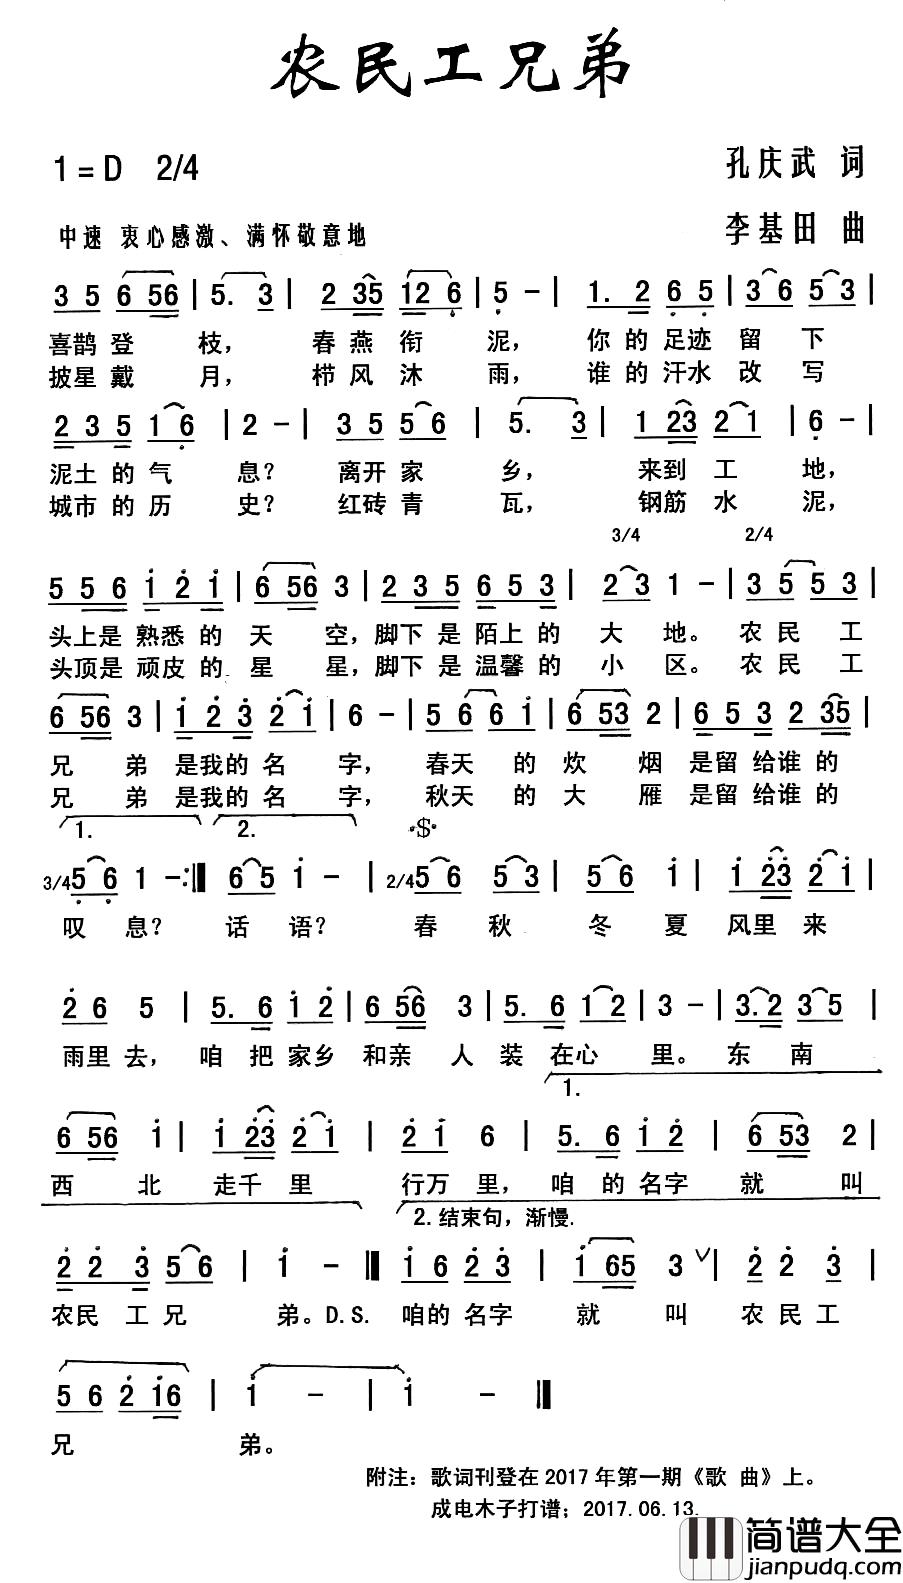 农民工兄弟
1 = D 2/4
孔庆武 词
中速 衷心感激、满怀敬意地
李基田 曲
3 5 6 5 6 | 5. 3 | 2 3 5 1 2 6 | 5 – | 1. 2 6 5 | 3 6 5 3 |
喜鹊 登 枝， 春 燕 衔 泥， 你 的 足迹 留 下
披星 戴 月， 栉 风 沐 雨， 谁 的 汗水 改 写
2 3 5 1 6 | 2 – | 3 5 5 6 | 5. 3 | 1 2 3 2 1 | 6 – |
泥土 的 气 息？ 离开 家 乡， 来到 工 地，
城市 的 历 史？ 红砖 青 瓦， 钢筋 水 泥，
3/4 2/4
5 5 6 1 2 1 | 6 5 6 3 | 2 3 5 6 5 3 | 2 3 1 – | 3 5 5 3 |
头上是 熟悉 的 天 空，脚下 是 陌上 的 大 地。 农 民 工
头顶是 顽皮 的 星 星，脚下 是 温馨 的 小 区。 农 民 工
6 5 6 3 | 1 2 3 2 1 | 6 – | 5 6 6 1 | 6 5 3 2 | 6 5 3 2 3 5 |
兄 弟 是我的 名 字， 春天 的 炊 烟 是留 给谁 的
兄 弟 是我的 名 字， 秋天 的 大 雁 是留 给谁 的
1. 2. 𝄋
3/4 5 6 1 – :‖ 6 5 1 – | 2/4 5 6 5 3 | 5 6 1 | 1 2 3 2 1 |
叹 息？ 话 语？ 春 秋 冬 夏 风里 来
2 6 5 | 5. 6 1 2 | 6 5 6 3 | 5. 6 1 2 | 3 – | 3. 2 3 5 |
雨里 去， 咱 把 家乡 和亲 人 装 在心 里。 东 南
1.
6 5 6 1 | 1 2 3 2 1 | 2 1 6 | 5. 6 1 2 | 6 5 3 2 |
西 北 走千 里 行万 里， 咱 的 名字 就 叫
2. 结束句，渐慢.
2 2 3 5 6 | 1 – ‖ 1 6 2 3 | 1 6 5 3 ∨ | 2 2 3 |
农民 工 兄 弟。D.S. 咱的 名字 就 叫 农 民 工
5 6 2 1 6 | 1 – | 1 – ‖
兄 弟。
附注：歌词刊登在 2017 年第一期《歌 曲》上。
成电木子打谱；2017.06.13.
简谱大全
jianpudq.com